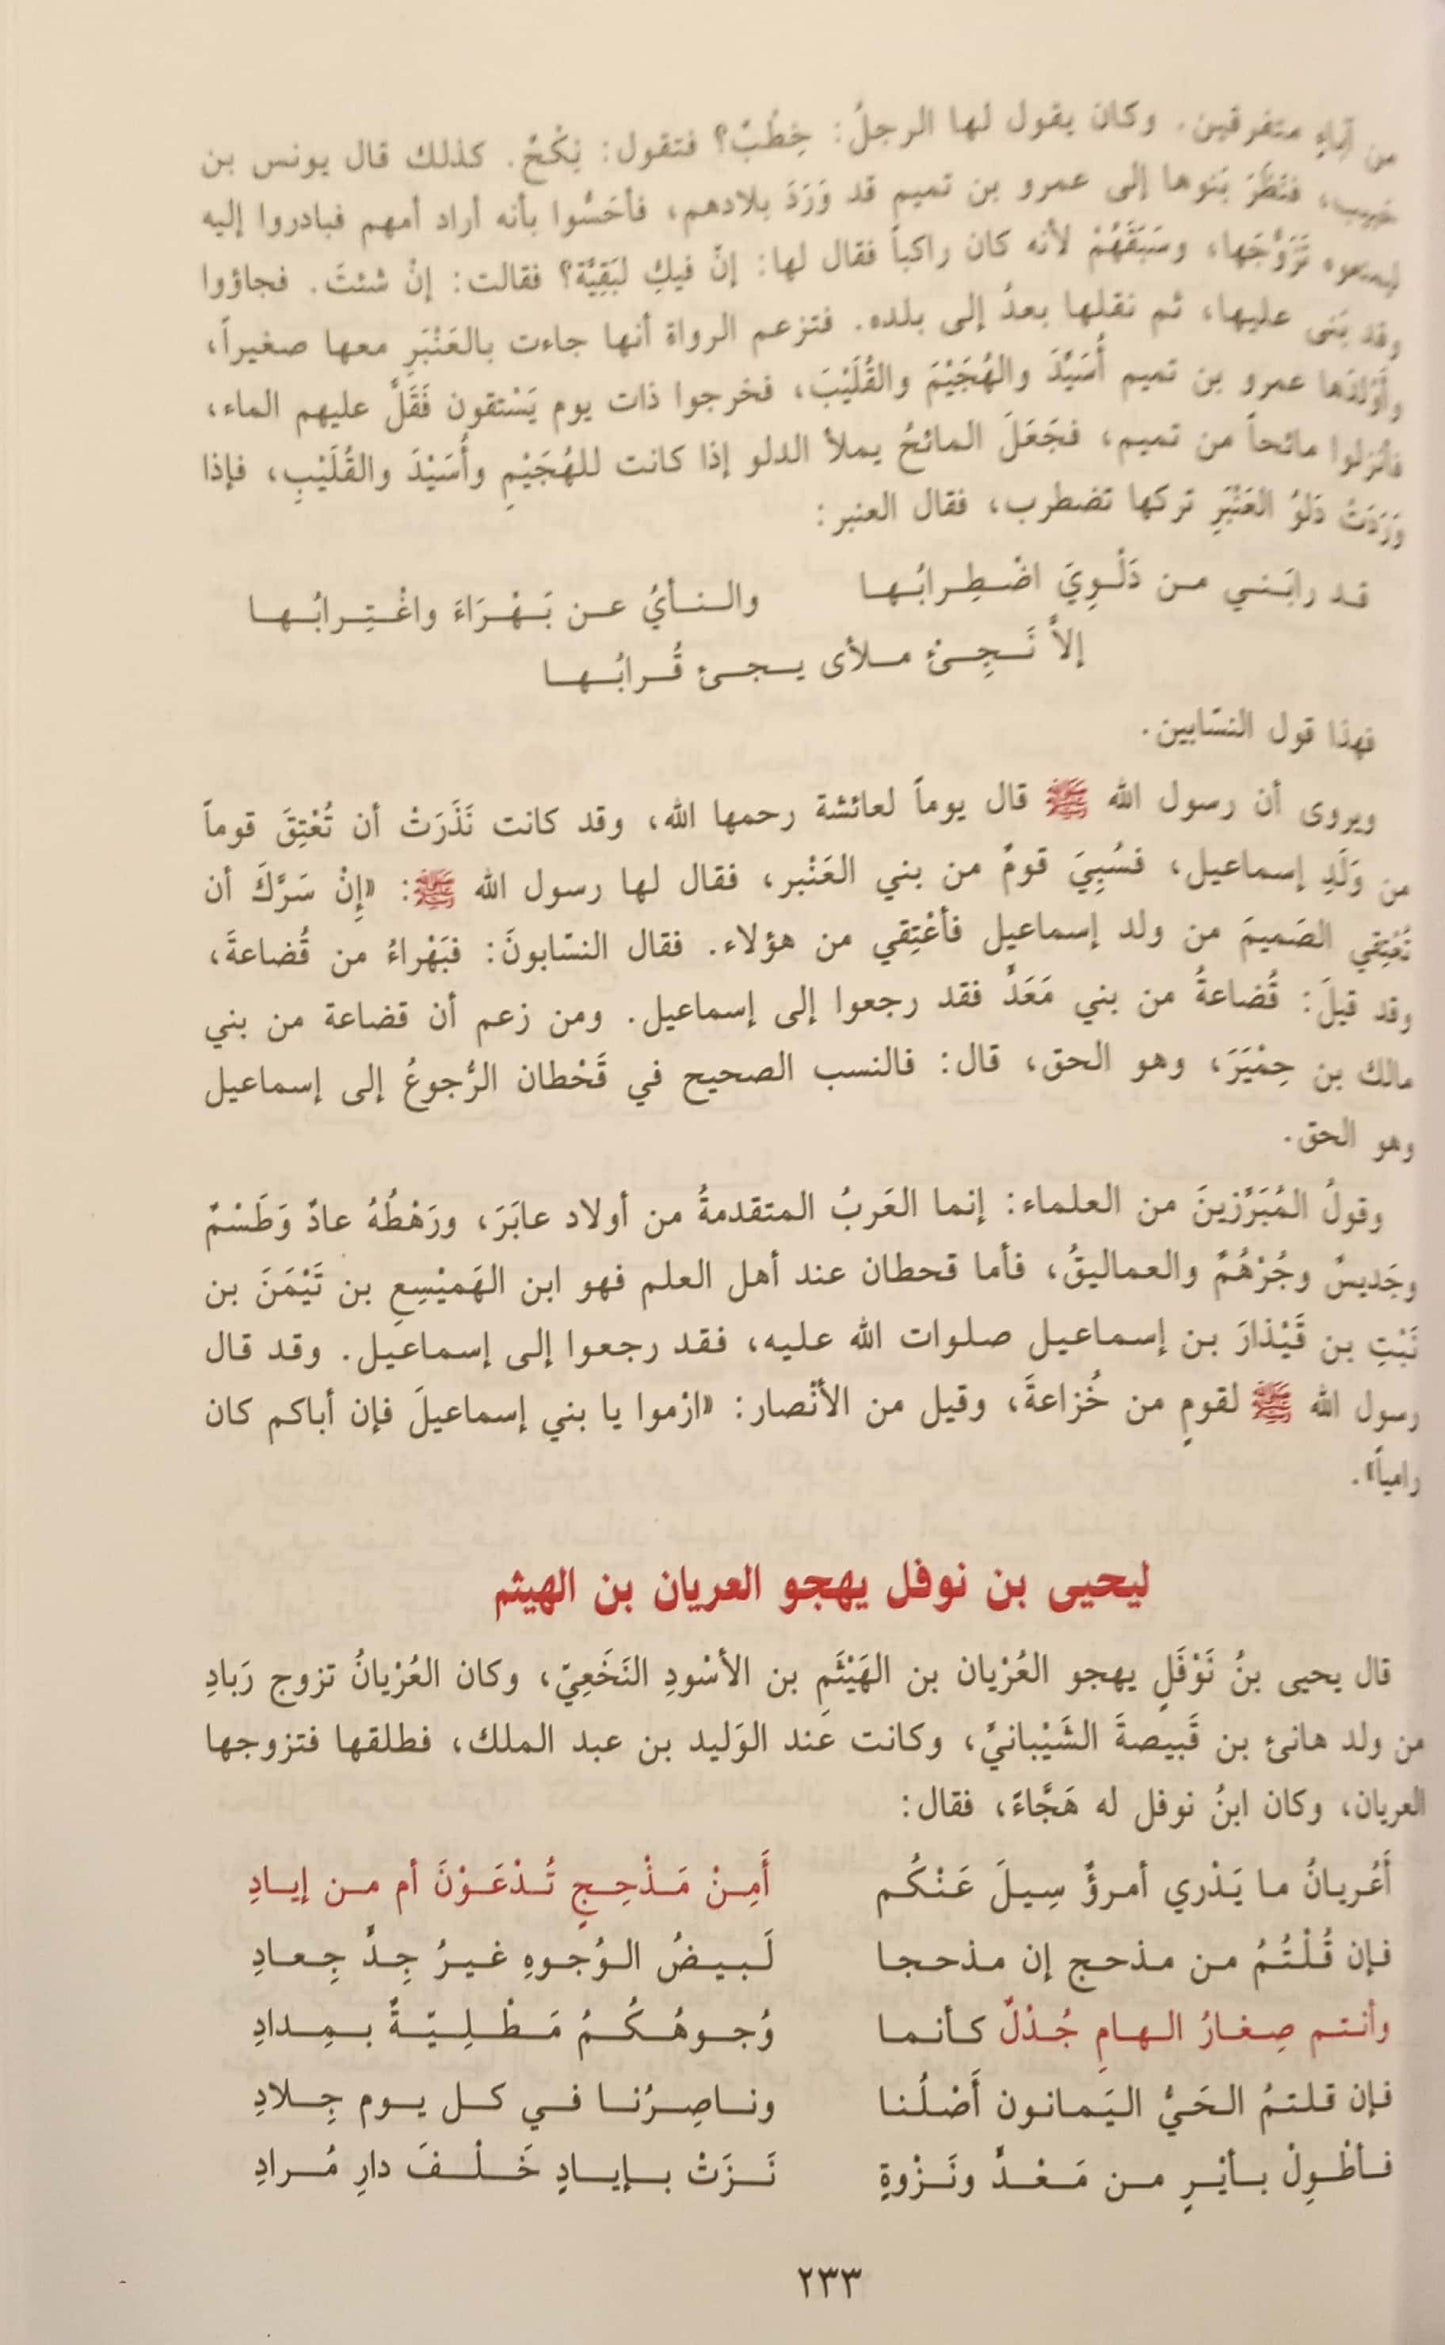 من آباءٍ متفرقين. وكان يقول لها الرجلُ: خِطْبٌ؟ فتقول: نِكْحٌ. كذلك قال يونس بن
حَبيب، فنَظَرَ بَنوها إلى عمرو بن تميم قد وَرَدَ بلادهم، فأحَسُّوا بأنه أراد أمهم فبادروا إليه
ليمنعوه تَزَوُّجَها، وسَبَقَهُمْ لأنه كان راكباً فقال لها: إنّ فيكِ لبَقِيَّة؟ فقالت: إنْ شئتَ. فجاؤوا
وقد بَنى عليها، ثم نقلها بعدُ إلى بلده. فتزعم الرواة أنها جاءت بالعَنْبَرِ معها صغيراً،
وأَوْلَدَها عمرو بن تميم أُسَيِّدَ والهُجَيْمَ والقُلَيْبَ، فخرجوا ذات يوم يَسْتقون فَقَلَّ عليهم الماء،
فأنزلوا مائحاً من تميم، فجَعَلَ المائحُ يملأ الدلو إذا كانت للهُجَيْمِ وأُسَيْدَ والقُلَيْبِ، فإذا
وَرَدَتْ دَلوُ العَنْبَرِ تركها تضطرب، فقال العنبر:
قد رابَني من دَلْوِيَ اضْطِرابُها والنأيُ عن بَهْرَاءَ واغْتِرابُها
إلاَّ نَجِئْ ملأى يجئ قُرابُها
فهذا قول النسّابين.
ويروى أن رسول الله ﷺ قال يوماً لعائشة رحمها الله، وقد كانت نَذَرَتْ أن تُعْتِقَ قوماً
من وَلَدِ إسماعيل، فسُبِيَ قومٌ من بني العَنْبر، فقال لها رسول الله ﷺ: «إِنْ سَرَّكَ أن
تُعْتِقي الصَميمَ من ولد إسماعيل فأعْتِقي من هؤلاء. فقال النسّابونَ: فبَهْراءُ من قُضاعةَ،
وقد قيلَ: قُضاعةُ من بني مَعَدٍّ فقد رجعوا إلى إسماعيل. ومن زعم أن قضاعة من بني
مالك بن حِمْيَرَ، وهو الحق، قال: فالنسب الصحيح في قَحْطان الرُّجوعُ إلى إسماعيل
وهو الحق.
وقولُ المُبَرِّزينَ من العلماء: إنما العَربُ المتقدمةُ من أولاد عابَرَ، ورَهْطُهُ عادٌ وَطَسْمٌ
وجَديسٌ وجُرْهُمٌ والعماليقُ، فأما قحطان عند أهل العلم فهو ابن الهَميْسِعِ بن تَيْمَنَ بن
نَبْتِ بن قَيْذارَ بن إسماعيل صلوات الله عليه، فقد رجعوا إلى إسماعيل. وقد قال
رسول الله ﷺ لقومٍ من خُزاعةَ، وقيل من الأنْصار: «ارْموا يا بني إسماعيلَ فإن أباكم كان
رامياً».
ليحيى بن نوفل يهجو العريان بن الهيثم
قال يحيى بنُ نَوْفَلٍ يهجو العُرْيان بن الهَيْثَمِ بن الأسْودِ النَخَعِيّ، وكان العُرْيانُ تزوج رَبادِ
من ولد هانئ بن قَبيصةَ الشَيْبانيِّ، وكانت عند الوَليد بن عبد الملك، فطلقها فتزوجها
العريان، وكان ابنُ نوفل له هَجَّاءً، فقال:
أَعُريانُ ما يَدْري أمرؤٌ سِيلَ عَنْكُم أَمِنْ مَذْحِجٍ تُدْعَوْنَ أم من إيادِ
فإن قُلْتُمُ من مذحج إن مذحجا لَبيضُ الوُجوهِ غيرُ جِدِّ جِعادِ
وأنتم صِغارُ الهامِ جُدْلٌ كأنما وُجوهُكُمُ مَطْلِيّةٌ بمِدادِ
فإن قلتمُ الحَيُّ اليَمانون أَصْلُنا وناصِرُنا في كل يوم جِلادِ
فأطْوِلْ بأيْرٍ من مَعْدٍّ ونَزْوةٍ نَزَتْ بإيادٍ خَلْفَ دارِ مُرادِ
٢٣٣